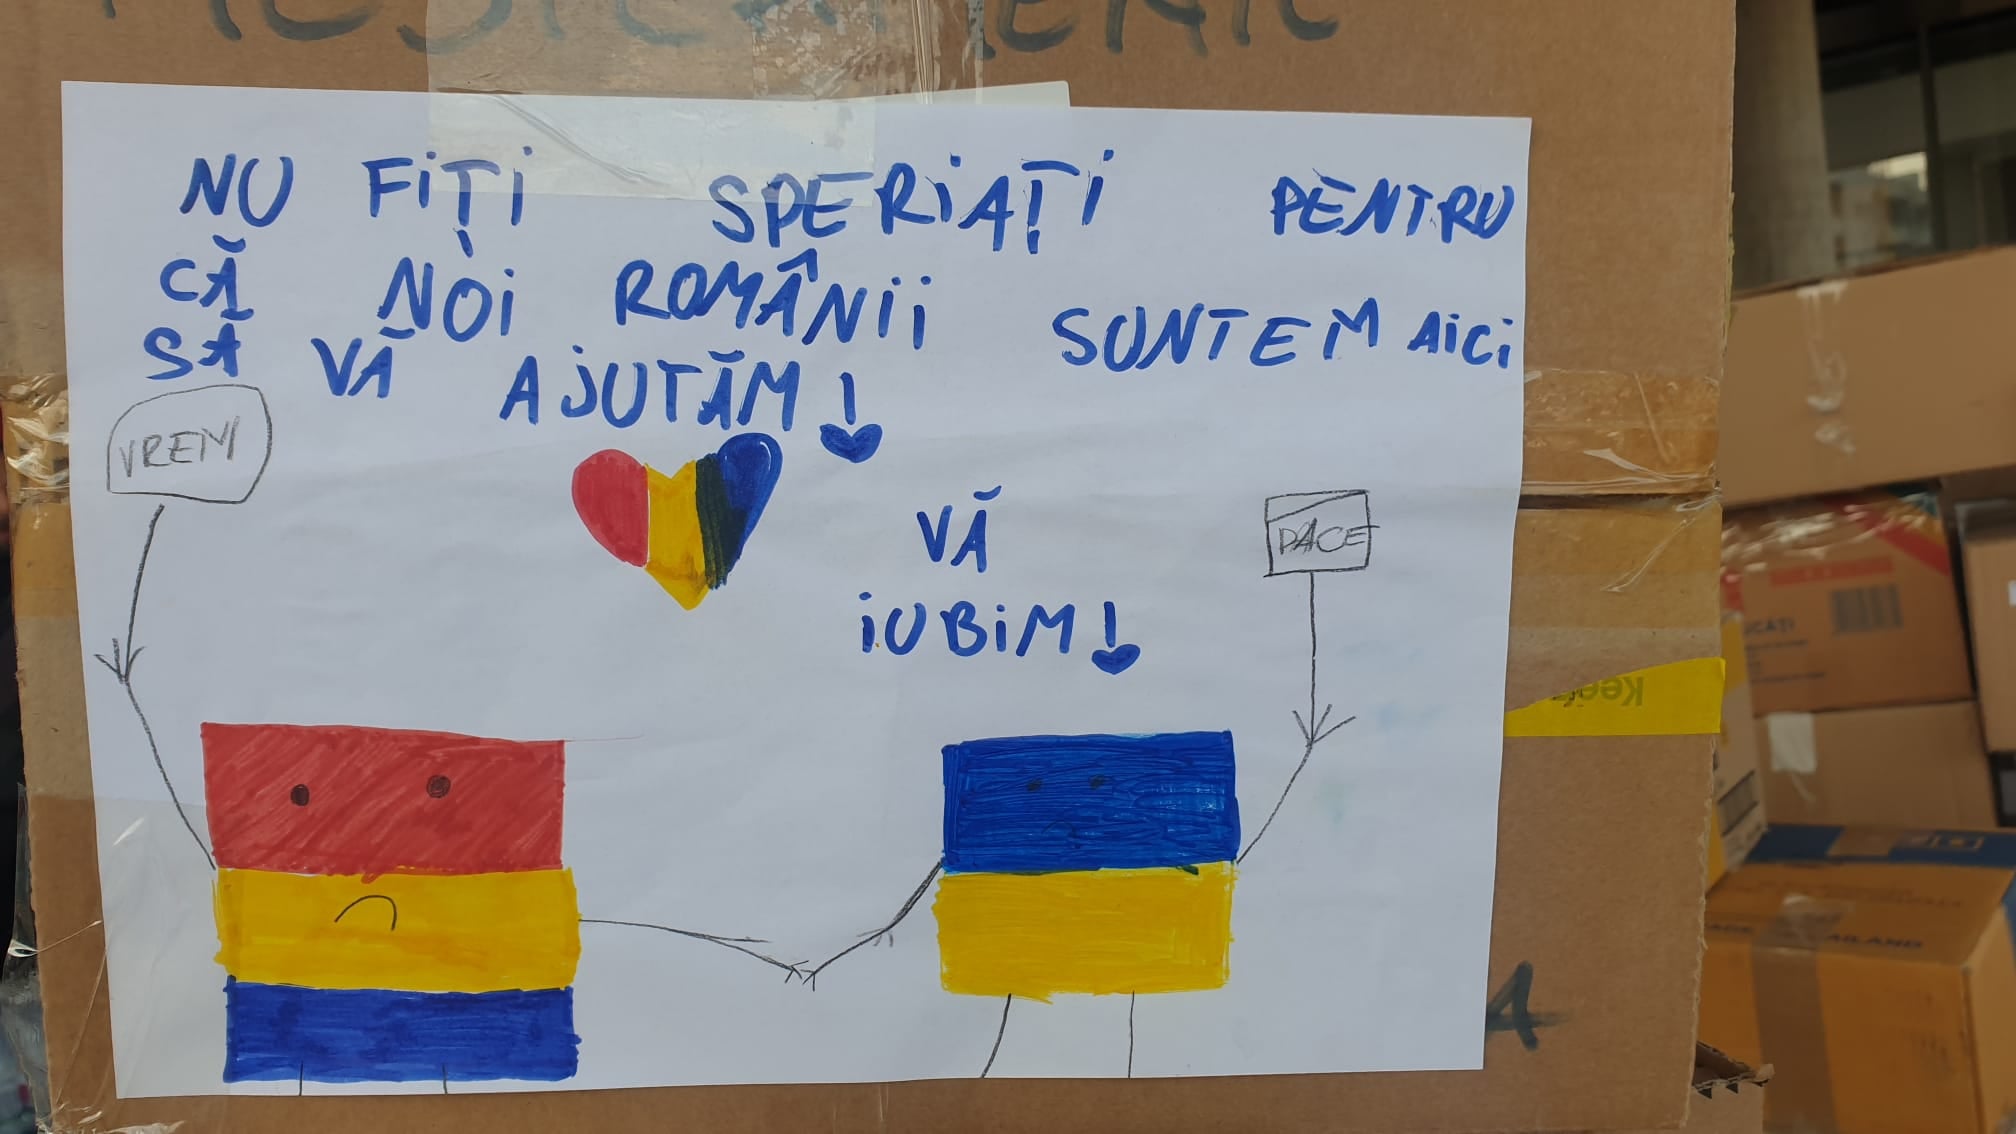 NU FIȚI SPERIAȚI PENTRU
CĂ NOI ROMÂNII SUNTEM AICI
SĂ VĂ AJUTĂM!
VREM
VĂ
PACE
IUBIM!
Keep